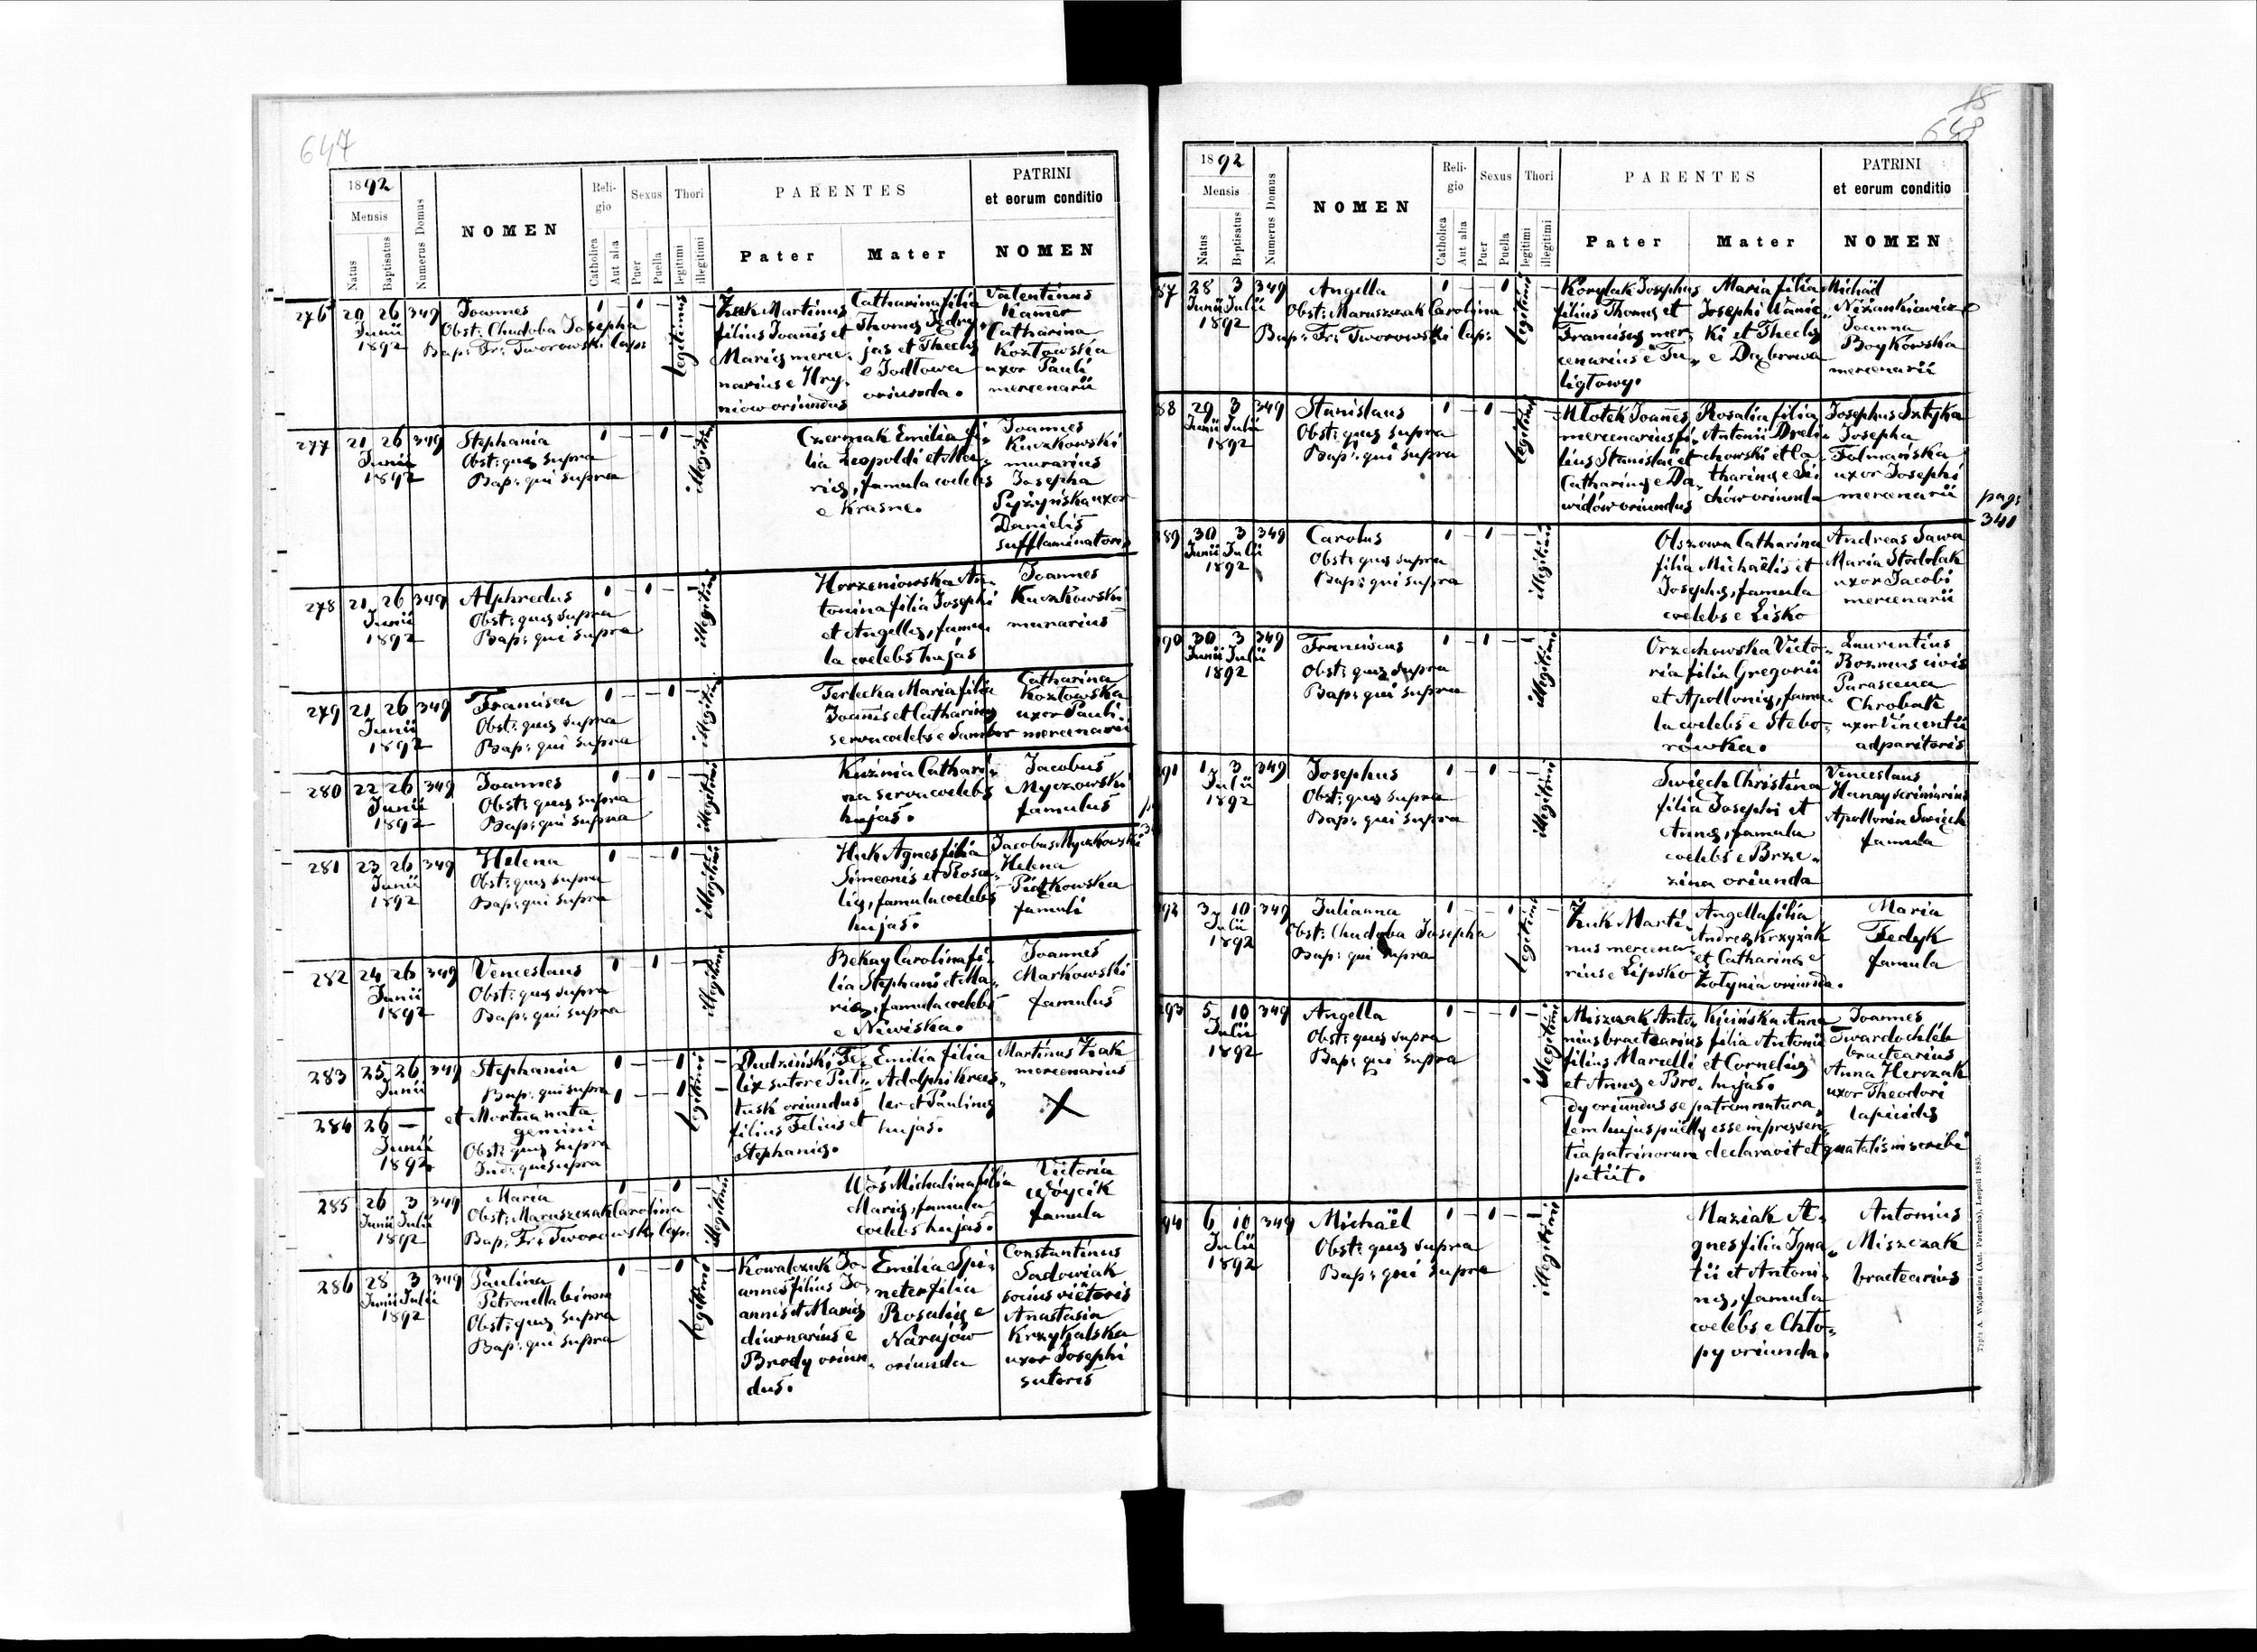 647
1892
Mensis
Natus
Baptisatus
Numerus Domus
NOMEN
Reli-
gio
Catholica
Aut alia
Sexus
Puer
Puella
Thori
legitimi
illegitimi
PARENTES
Pater
Mater
PATRINI
et eorum conditio
NOMEN
276
20 26 349
Junii
1892
Joannes
Obst: Chudoba Josepha
Bap: Fr: Tworowski cap:
1 – 1 –
legitimus
Żuk Martinus
filius Joannis et
Marię merce-
narius e Hry-
niow oriundus
Catharina filia
Thomę Jędry-
jas et Theclę
e Jodłowa
oriunda.
Valentinus
Kamer
Catharina
Kozłowska
uxor Pauli
mercenarii
277
21 26 349
Junii
1892
Stephania
Obst: quę supra
Bap: qui supra
1 – – 1 –
illegitimi
Czermak Emilia fi-
lia Leopoldi et Ma-
rię, famula coelebs
e Krasne.
Joannes
Kuczkowski
murarius
Josepha
Pyżyńska uxor
Danielis
sufflaminatoris
278
21 26 349
Junii
1892
Alphredus
Obst: quę supra
Bap: qui supra
1 – 1 – – 1
illegitimi
Horzeniowska An-
tonina filia Josephi
et Angellę, famu-
la coelebs hujas
Joannes
Kuczkowski
murarius
279
21 26 349
Junii
1892
Francisca
Obst: quę supra
Bap: qui supra
1 – – 1 – 1
illegitimi
Terlecka Maria filia
Joannis et Catharinę
serva coelebs e Sambor
Catharina
Kozłowska
uxor Pauli
mercenarii
280
22 26 349
Junii
1892
Joannes
Obst: quę supra
Bap: qui supra
1 – 1 – – 1
illegitimi
Kuźnia Cathari-
na serva coelebs
hujas.
Jacobus
Myczkowski
famulus
281
23 26 349
Junii
1892
Helena
Obst: quę supra
Bap: qui supra
1 – – 1 – 1
illegitimi
Huk Agnes filia
Simeonis et Rosa-
lię, famula coelebs
hujas.
Jacobus Myczkowski
Helena
Piątkowska
famuli
282
24 26 349
Junii
1892
Venceslaus
Obst: quę supra
Bap: qui supra
1 – 1 – – 1
illegitimi
Bekay Carolina fi-
lia Stephani et Ma-
rię, famula coelebs
e Niwiska.
Joannes
Markowski
famulus
283
25 26 349
Junii
Stephania
Bap: qui supra
284
26 –
Junii
1892
et Mortua nata
gemini
Obst: quę supra
Ind: qui supra
1 – – 1 –
1 – – 1 –
legitimi
Dudziński Fe-
lix sutor e Puł-
tusk oriundus
filius Felicis et
Stephanię.
Emilia filia
Adolphi Kreis-
ler et Paulinę
hujas.
Martinus Żak
mercenarius
285
26 3 349
Junii Julii
1892
Maria
Obst: Maruszczak Carolina
Bap: Fr: Tworowski cap:
1 – – 1 – 1
illegitimi
Woś Michalina filia
Marię, famula
coelebs hujas.
Victoria
Wóycik
famula
286
28 3 349
Junii Julii
1892
Paulina
Petronella binom
Obst: quę supra
Bap: qui supra
1 – – 1 –
legitimi
Kowalczuk Jo-
annes filius Jo-
annis et Marię
diurnarius e
Brody oriun-
dus.
Emilia Spi-
neter filia
Rosalię e
Narajów
oriunda
Constantinus
Sadowiak
socius viëtoris
Anastasia
Krzykalska
uxor Josephi
sutoris
18
648
1892
Mensis
Natus
Baptisatus
Numerus Domus
NOMEN
Reli-
gio
Catholica
Aut alia
Sexus
Puer
Puella
Thori
legitimi
illegitimi
PARENTES
Pater
Mater
PATRINI
et eorum conditio
NOMEN
87
28 3 349
Junii Julii
1892
Angella
Obst: Maruszczak Carolina
Bap: Fr: Tworowski cap:
1 – – 1 –
legitimi
Korylak Josephus
filius Thomę et
Franciscę mer-
cenarius e Tu-
ligłowy.
Maria filia
Josephi
ki et Theclę
e Dąbrowa
Michaël
Niżankiewicz
Joanna
Boykowska
mercenarii
88
29 3 349
Junii Julii
1892
Stanislaus
Obst: quę supra
Bap: qui supra
1 – 1 – –
legitimi
Młotek Joannes
mercenarius fi-
lius Stanislai et
Catharinę e Da-
widów oriundus
Rosalia filia
Antonii Dzeli-
chowski et Ca-
tharinę e Si-
chów oriunda
Josephus Sztyka
Josepha
Folmańska
uxor Josephi
mercenarii
pag:
341
89
30 3 349
Junii Julii
1892
Carolus
Obst: quę supra
Bap: qui supra
1 – 1 – – 1
illegitimi
Olszowa Catharina
filia Michaëlis et
Josephę, famula
coelebs e Lisko
Andreas Sawa
Maria Stodolak
uxor Jacobi
mercenarii
90
30 3 349
Junii Julii
1892
Franciscus
Obst: quę supra
Bap: qui supra
1 – 1 – – 1
illegitimi
Orzechowska Victo-
ria filia Gregorii
et Apollonię, famu-
la coelebs e Stebo-
rówka.
Laurentius
Bozmus civis
Parascena
Chrobak
uxor Vincentii
adparitoris
91
1 3 349
Julii
1892
Josephus
Obst: quę supra
Bap: qui supra
1 – 1 – – 1
illegitimi
Swięch Christina
filia Josephi et
Annę, famula
coelebs e Brze-
zina oriunda
Venceslaus
Hanay scriniarius
Apollonia Swięch
famula
92
3 10 349
Julii
1892
Julianna
Obst: Chudoba Josepha
Bap: qui supra
1 – – 1 –
legitimi
Żuk Marti-
nus mercena-
rius e Lipsko
Angella filia
Andreę Krzyżak
et Catharinę e
Żołynia oriunda.
Maria
Fedyk
famula
93
5 10 349
Julii
1892
Angella
Obst: quę supra
Bap: qui supra
1 – – 1 – 1
illegitimi
Miszczak Anto-
nius bractearius
filius Marcelli
et Annę e Bro-
dy oriundus se patrem natura-
lem hujus puellę esse in presen-
tia patrinorum declaravit et qua talis inscribi
petiit.
Kicińska Anna
filia Antonii
et Cornelię
hujas.
Joannes
Twardochleb
bractearius
Anna Herczak
uxor Theodori
lapicidę
94
6 10 349
Julii
1892
Michaël
Obst: quę supra
Bap: qui supra
1 – 1 – – 1
illegitimi
Maziak A-
gnes filia Igna-
tii et Antoni-
nę, famula
coelebs e Chło-
py oriunda.
Antonius
Miszczak
bractearius
Typis A. Wajdowicz (Ant. Poremba), Leopoli 1885.